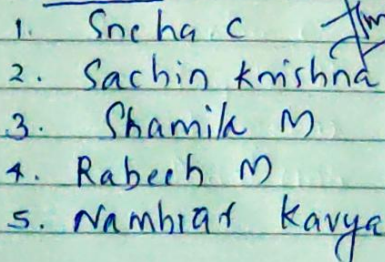 1. Sneha C
2. Sachin Krishna
3. Shamil M
4. Rabeeh M
5. Nambiar Kavya